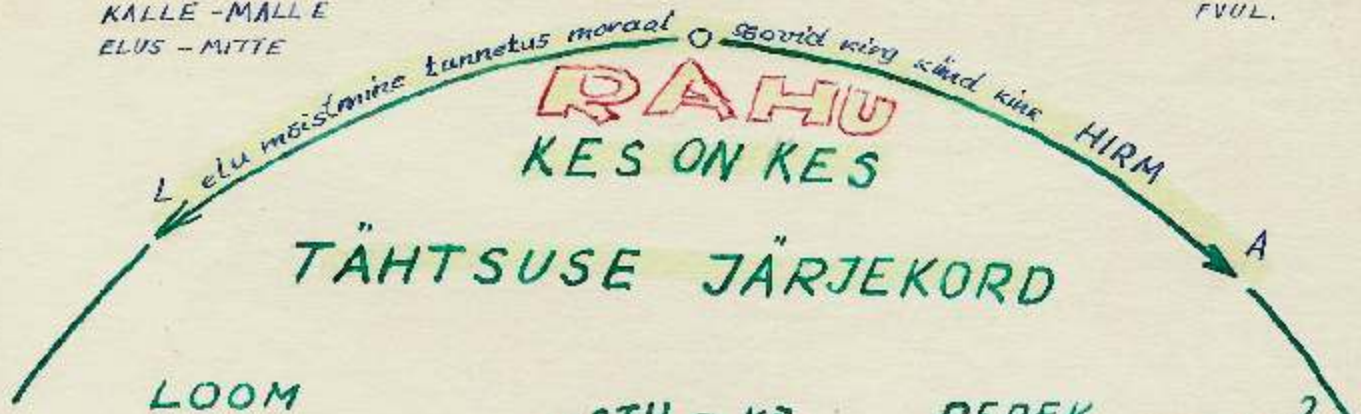 KALLE - MALLE
ELUS - MITTE
FVUL.
L elu mõistmine tunnetus moraal
soovid king HIRM A
RAHU
KES ON KES
TÄHTSUSE JÄRJEKORD
LOOM
PEREK
?